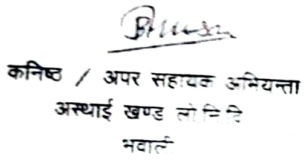 कनिष्ठ / अपर सहायक अभियन्ता
अस्थाई खण्ड लो नि वि